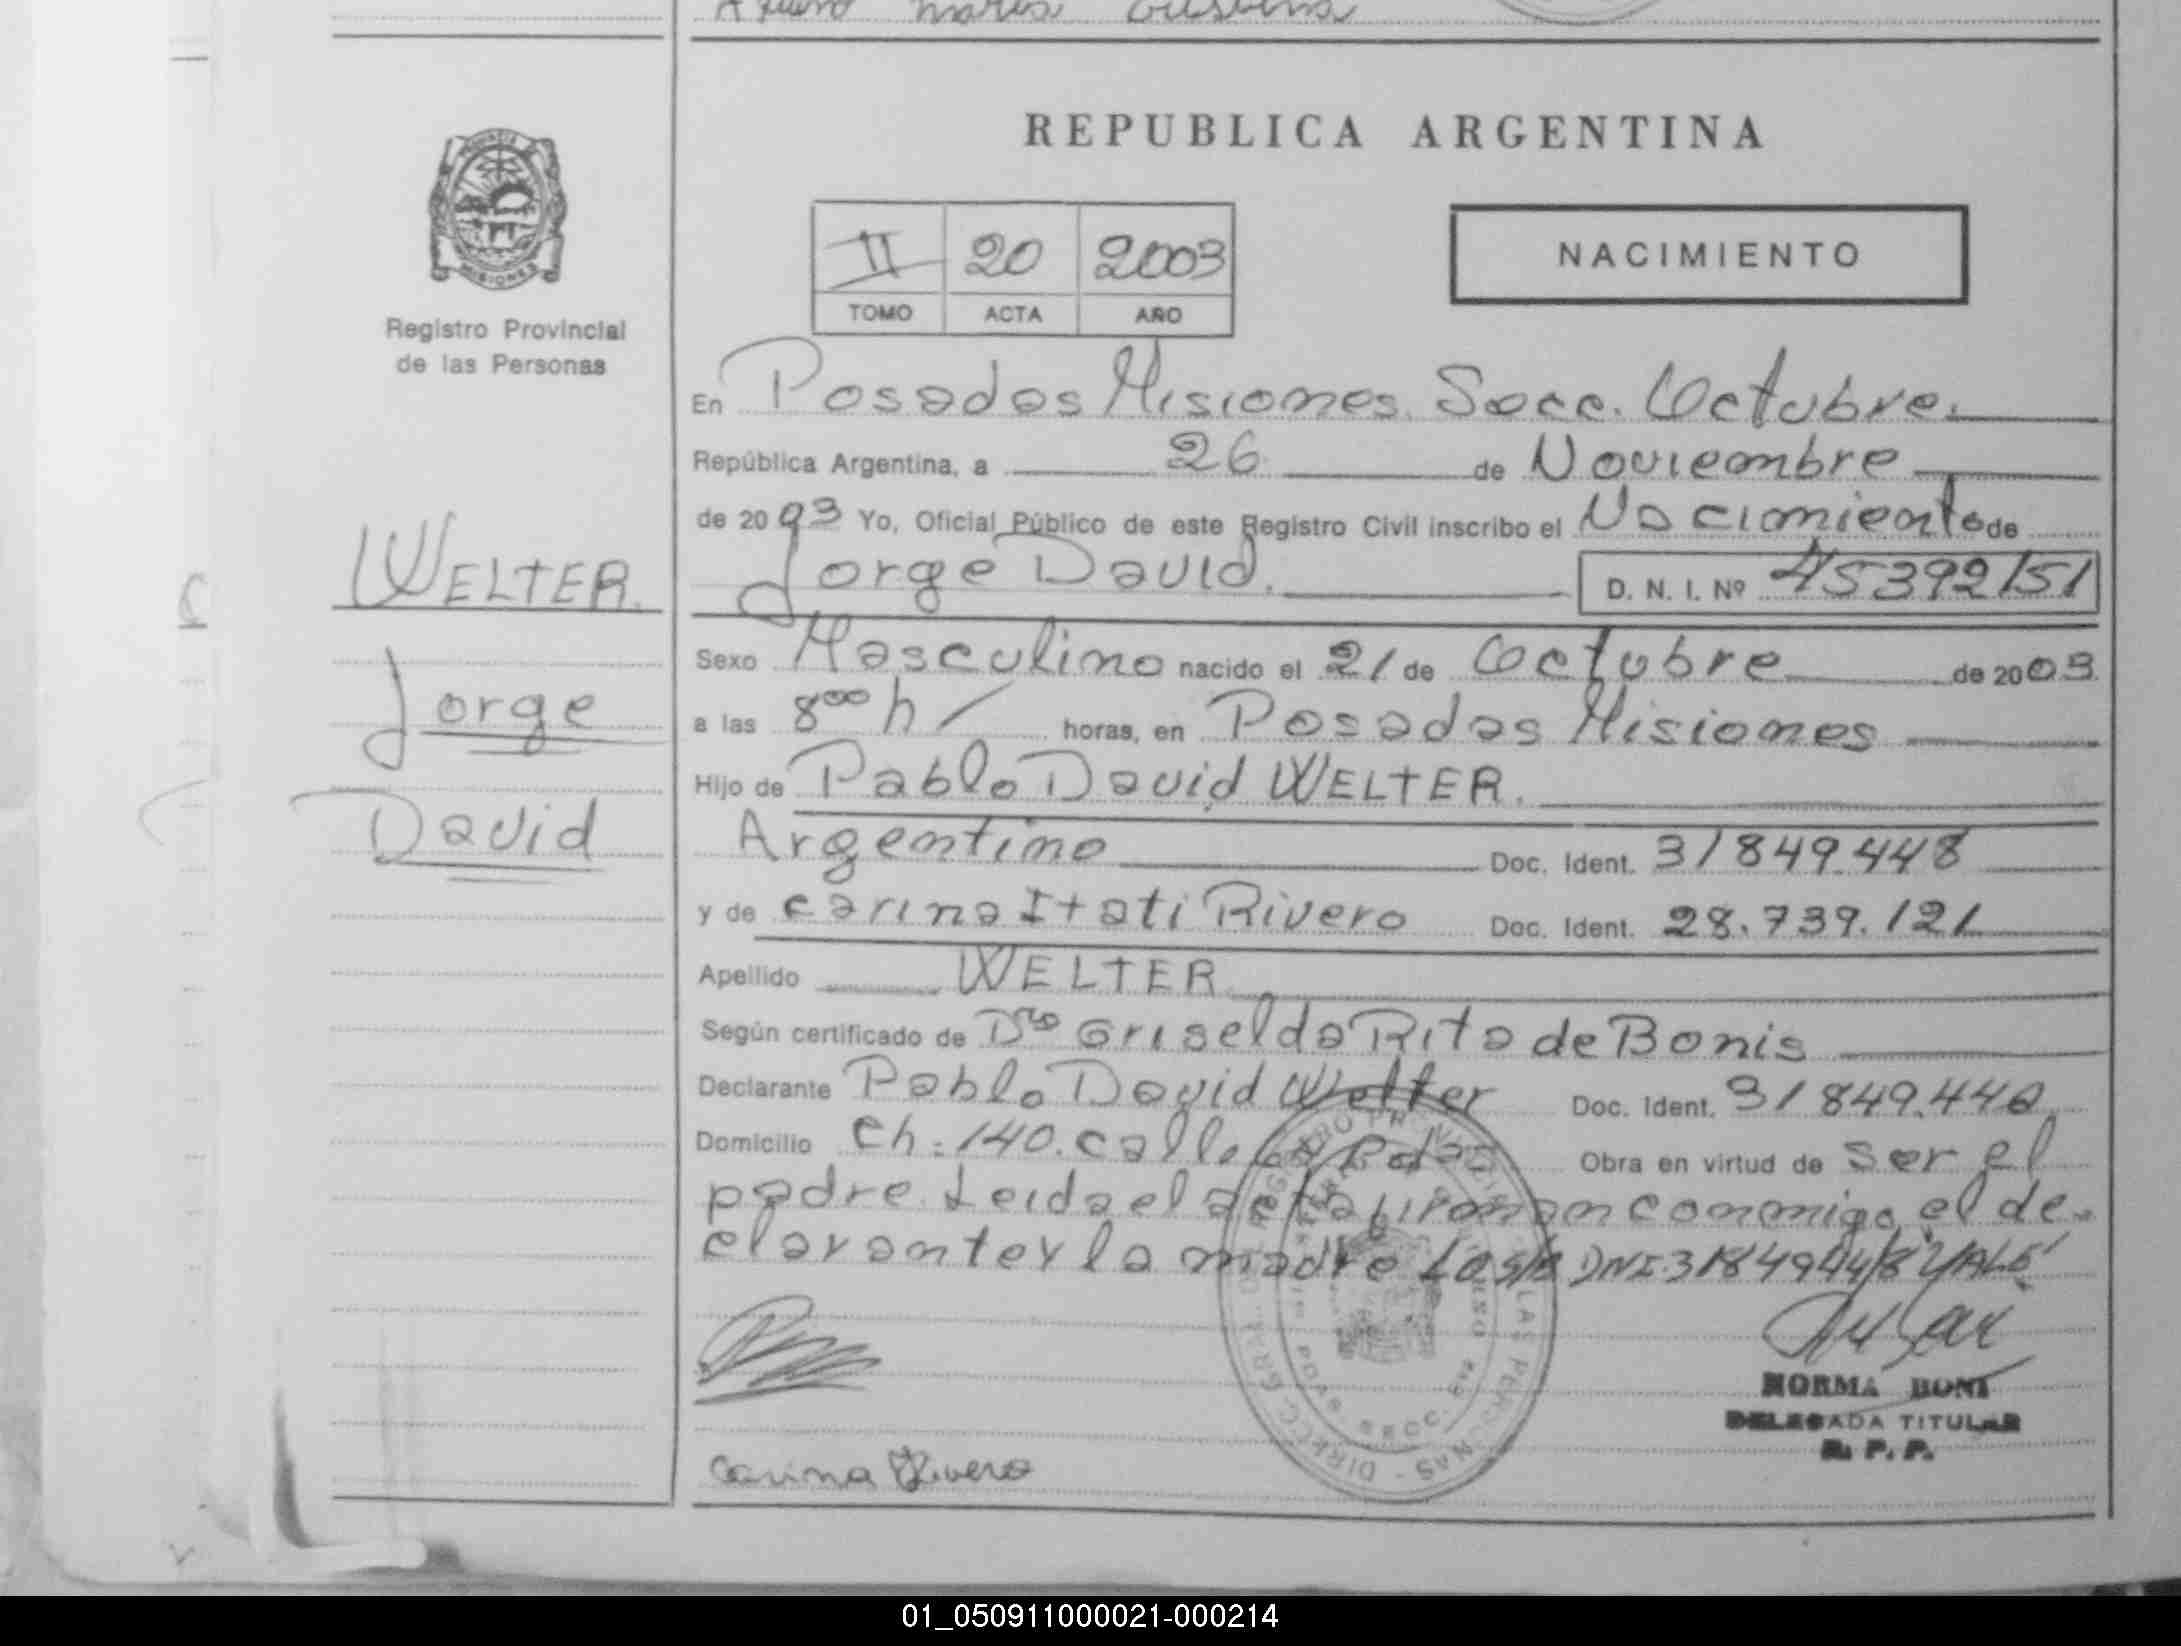 REPUBLICA ARGENTINA
PROVINCIA DE
MISIONES
Registro Provincial
de las Personas
II 20 2003
TOMO ACTA AÑO
NACIMIENTO
En Posadas Misiones. Secc. Octubre.
República Argentina, a 26 de Noviembre
de 2003 Yo, Oficial Público de este Registro Civil inscribo el Nacimiento de
Jorge David. D. N. I. Nº 45392151
WELTER.
Jorge
David
Sexo Masculino nacido el 21 de Octubre de 2003
a las 8ºº h/ horas, en Posadas Misiones
Hijo de Pablo David WELTER.
Argentino Doc. Ident. 31849.448
y de Carina Itati Rivero Doc. Ident. 28.739.121
Apellido WELTER
Según certificado de Dra Griselda Rita de Bonis
Declarante Pablo David Welter Doc. Ident. 31849.448
Domicilio Ch: 140. calle Obra en virtud de ser el
padre. Leida el acta firman conmigo el de-
clarante y la madre DNI 31849448 VALE
NORMA BONI
DELEGADA TITULAR
R. P. P.
Carina Rivero
01_050911000021-000214